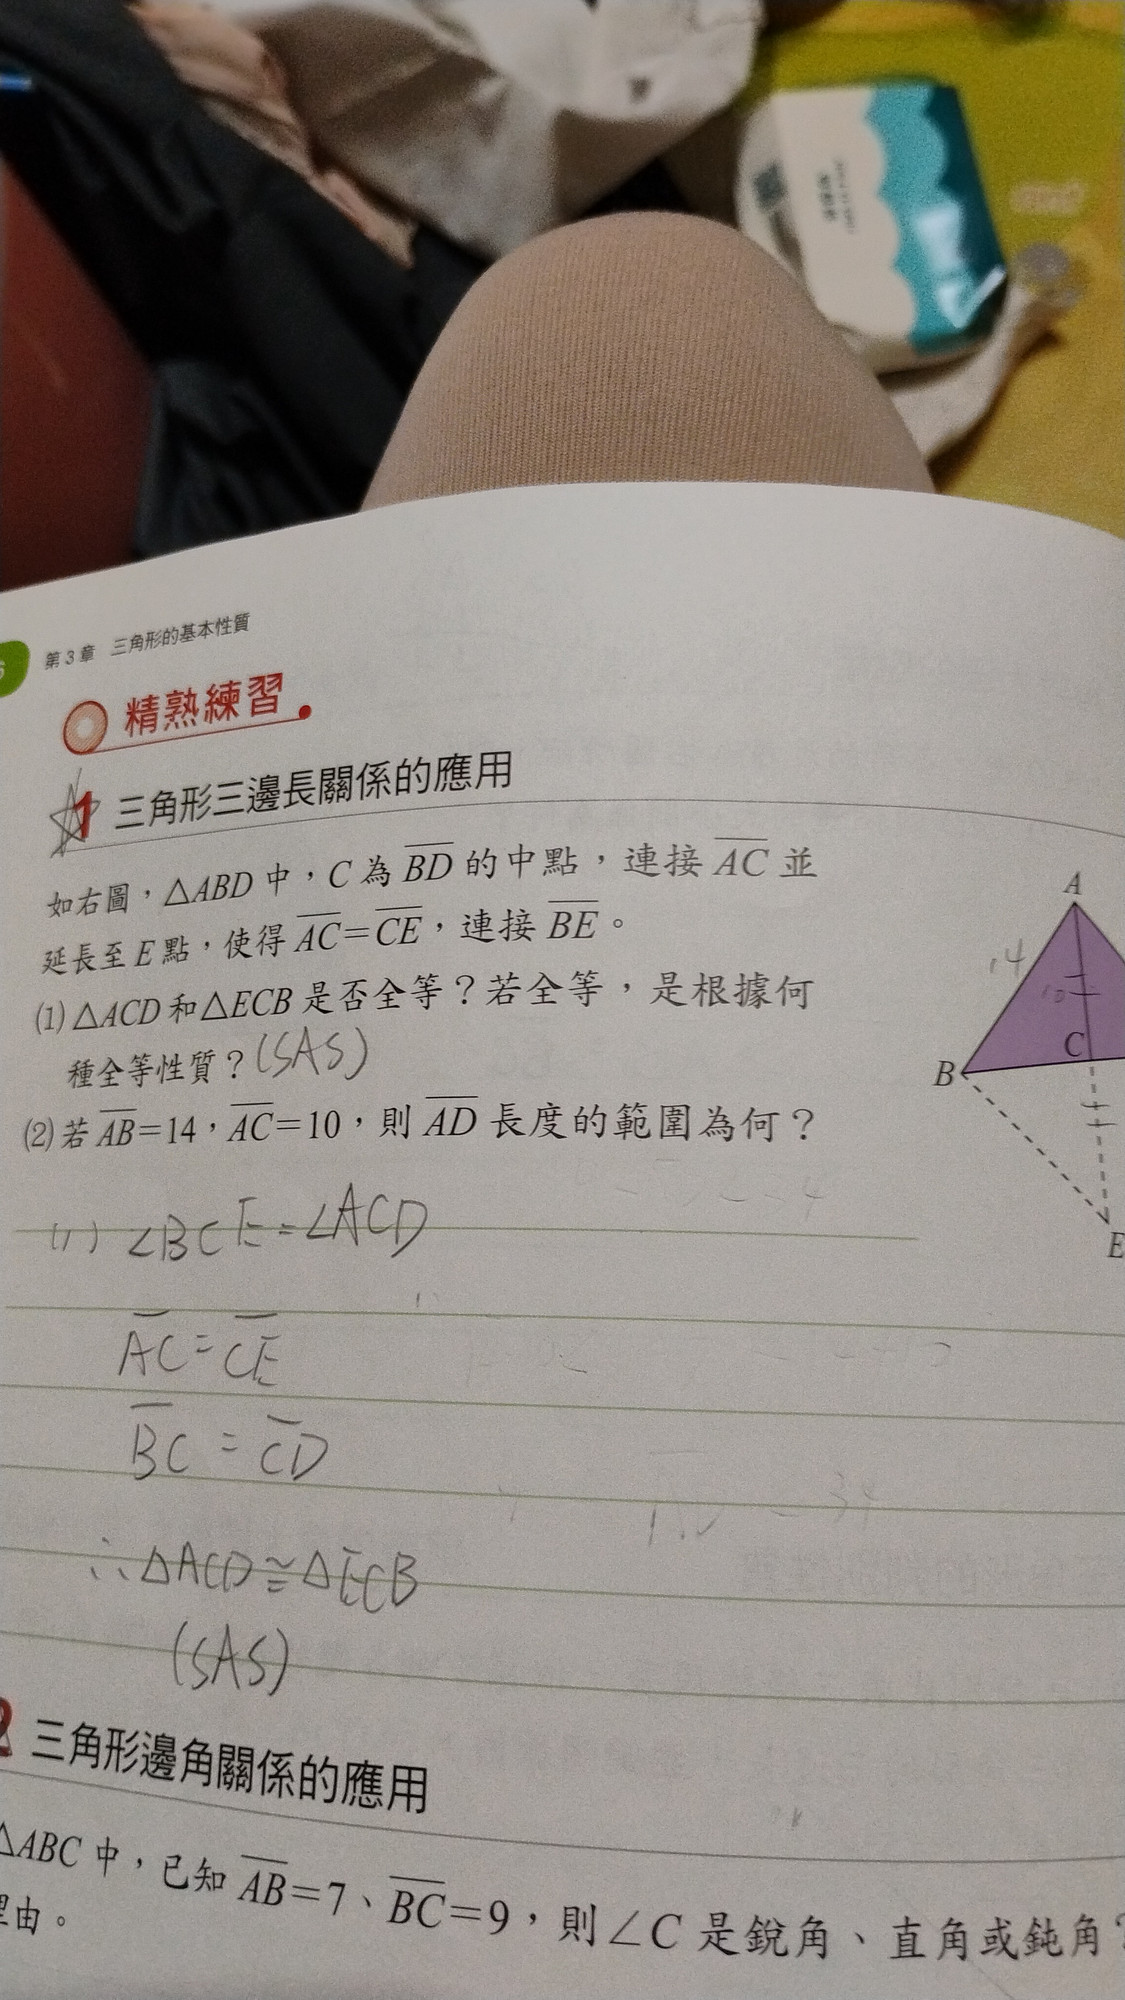 第3章 三角形的基本性質
精熟練習
1 三角形三邊長關係的應用
如右圖，△ABD中，C為BD的中點，連接AC並
延長至E點，使得AC=CE，連接BE。
(1)△ACD和△ECB是否全等？若全等，是根據何
種全等性質？(SAS)
(2)若AB=14，AC=10，則AD長度的範圍為何？
A
14
10
C
B
E
(1) ∠BCE=∠ACD
AC=CE
BC=CD
∴△ACD≅△ECB
(SAS)
2 三角形邊角關係的應用
△ABC中，已知AB=7、BC=9，則∠C是銳角、直角或鈍角？
理由。